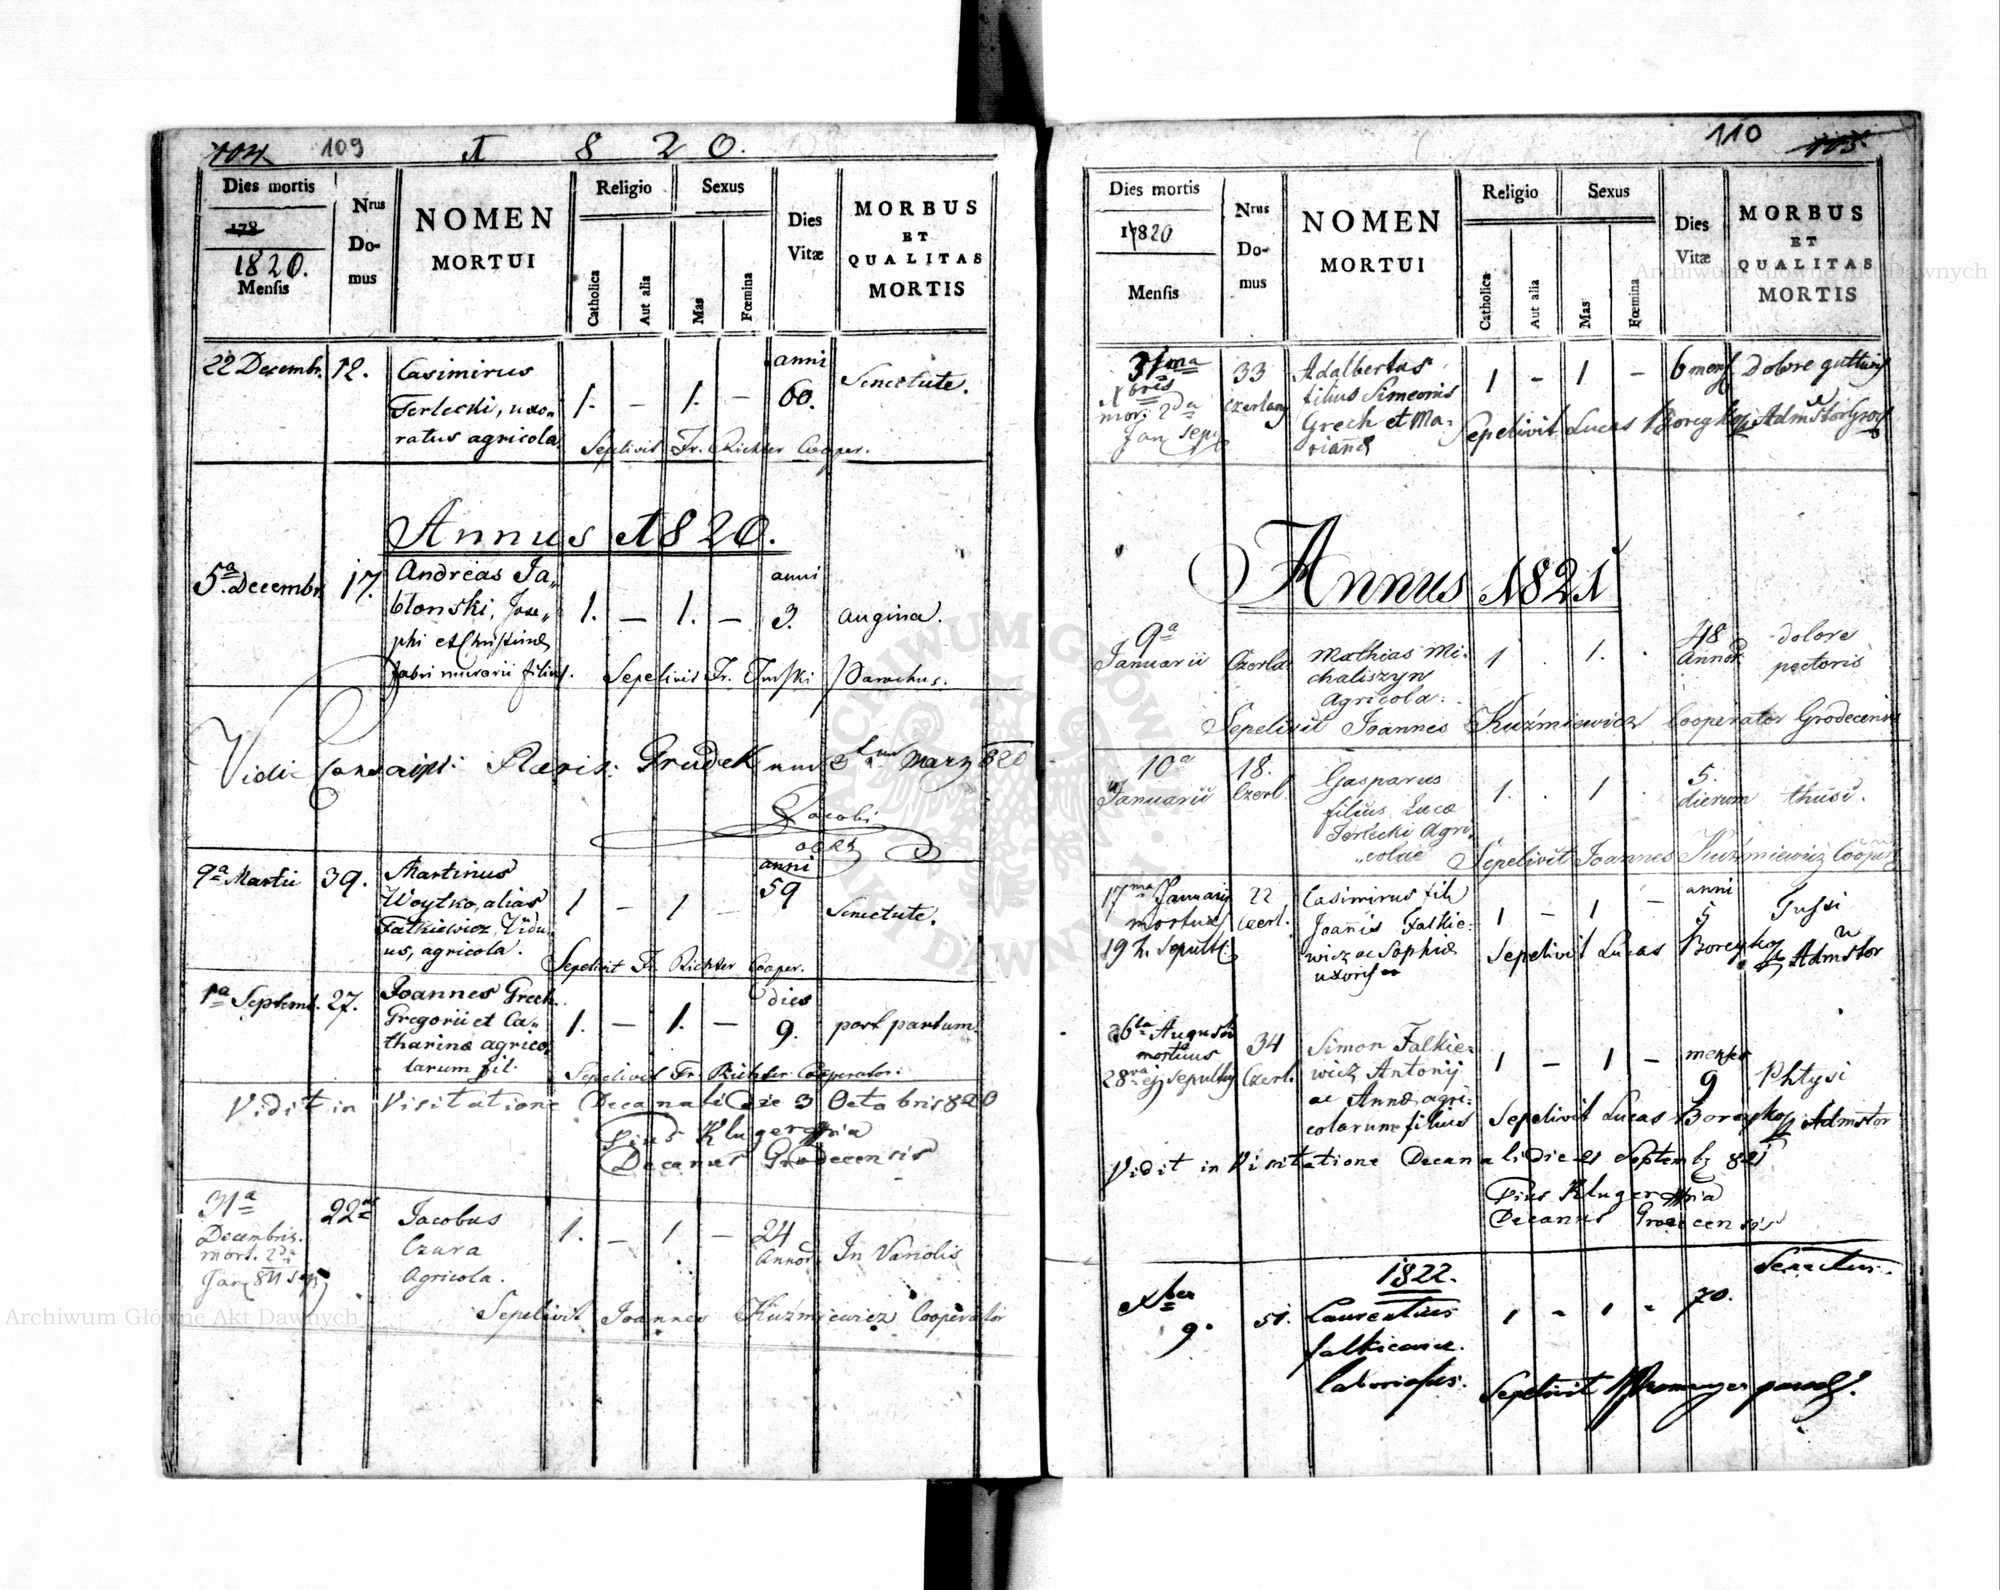 104 109 1 8 2 0.
Dies mortis
178
1820.
Mensis
Nrus
Do-
mus
NOMEN
MORTUI
Religio
Catholica
Aut alia
Sexus
Mas
Fœmina
Dies
Vitæ
MORBUS
ET
QUALITAS
MORTIS
22 Decembr. 12. Casimirus
Terlecki, uxo-
ratus agricola
1. – 1. – anni
60.
Senectute.
Sepelivit Fr. Richter Cooper.
Annus 1820.
5a Decembr. 17. Andreas Ja„
blonski, Jose„
phi et Christinæ
fabri murarii filius.
1. – 1. – anni
3.
angina.
Sepelivit Fr. Parochus.
Vidi Grudek Marz 820
Jacobi
9a Martii 39. Martinus
Woytko, alias
Falkiewicz, Vidu„
us, agricola.
1 – 1 – anni
59
Senectute.
Sepelivit Fr. Richter Cooper.
1a Septemb. 27. Joannes Grech
Gregorii et Ca„
tharinæ agrico
larum fil.
1. – 1. – dies
9.
post partum.
Sepelivit Fr. Richter Cooperator.
Vidit in Visitatione Decanali die 3 Octobris 820
Pius Kluger
Decanus Grodecensis
31a
Decembris.
mort. 2da
22 Jacobus
Czura
Agricola.
1. – 1 – 24
Annor.
In Variolis
Sepelivit Joannes Kuźmiewicz Cooperator
110 105
Dies mortis
17820
Mensis
Nrus
Do-
mus
NOMEN
MORTUI
Religio
Catholica
Aut alia
Sexus
Mas
Fœmina
Dies
Vitæ
MORBUS
ET
QUALITAS
MORTIS
31ma
Xbris
mor. 2da
Jan sep.
33
Czerlany
Adalbertus
filius Simeonis
Grech et Ma-
rianæ
1 – 1 – 6 mens Dolore gutturis
Sepelivit Lucas
Annus 1821
9a
Januarii
Czerla
Mathias Mi-
chaliszyn
Agricola.
1 . 1. . 48
Annor.
dolore
pectoris
Sepelivit Joannes Kuźmiewicz Cooperator Grodecensis
10a
Januarii
18.
Czerl.
Gasparus
filius Lucæ
Terlecki Agri„
„colae
1. . 1 . 5.
dierum
thusi.
Sepelivit Joannes Kuźmiewicz Cooper
17ma Januarij
mortuus
19 h. Sepult.
22
Czerl.
Casimirus fil
Joannis Falkie-
wicz ac Sophiæ
uxoris
1 – 1 – anni
5
Tussi
Sepelivit Lucas Admstor
26ta Augusti
mortuus
28va ej sepultus
34
Czerl.
Simon Falkie-
wicz Antonij
ac Annæ agri-
colarum filius
1 – 1 – menses
9
Phtysi
Sepelivit Lucas Admstor
Vidit in Visitatione Decanali die 21 Septemb 821
Pius Kluger
Decanus Grodecensis
1822.
Xber
9.
51. Laurentius
falkiewicz.
laboriosus.
1 – 1 – 70.
Senectus.
Sepelivit
Archiwum Główne Akt Dawnych
Archiwum Główne Akt Dawnych
ARCHIWUM GŁÓWNE AKT DAWNYCH